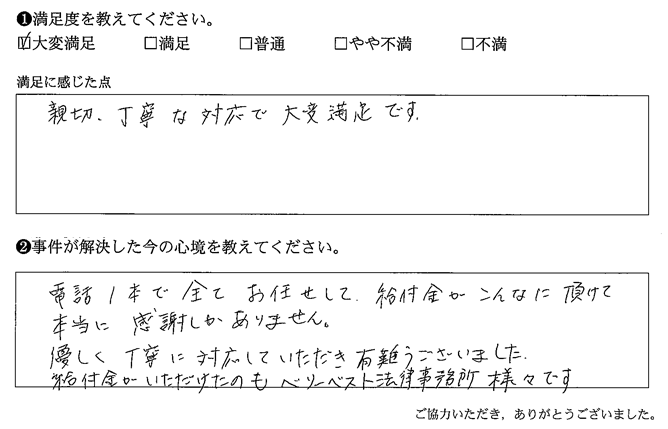 ❶満足度を教えてください。
☑大変満足 □満足 □普通 □やや不満 □不満
満足に感じた点
親切、丁寧な対応で大変満足です。
❷事件が解決した今の心境を教えてください。
電話1本で全てお任せして、給付金がこんなに頂けて
本当に感謝しかありません。
優しく丁寧に対応していただき有難うございました。
給付金がいただけたのもベリーベスト法律事務所様々です
ご協力いただき、ありがとうございました。